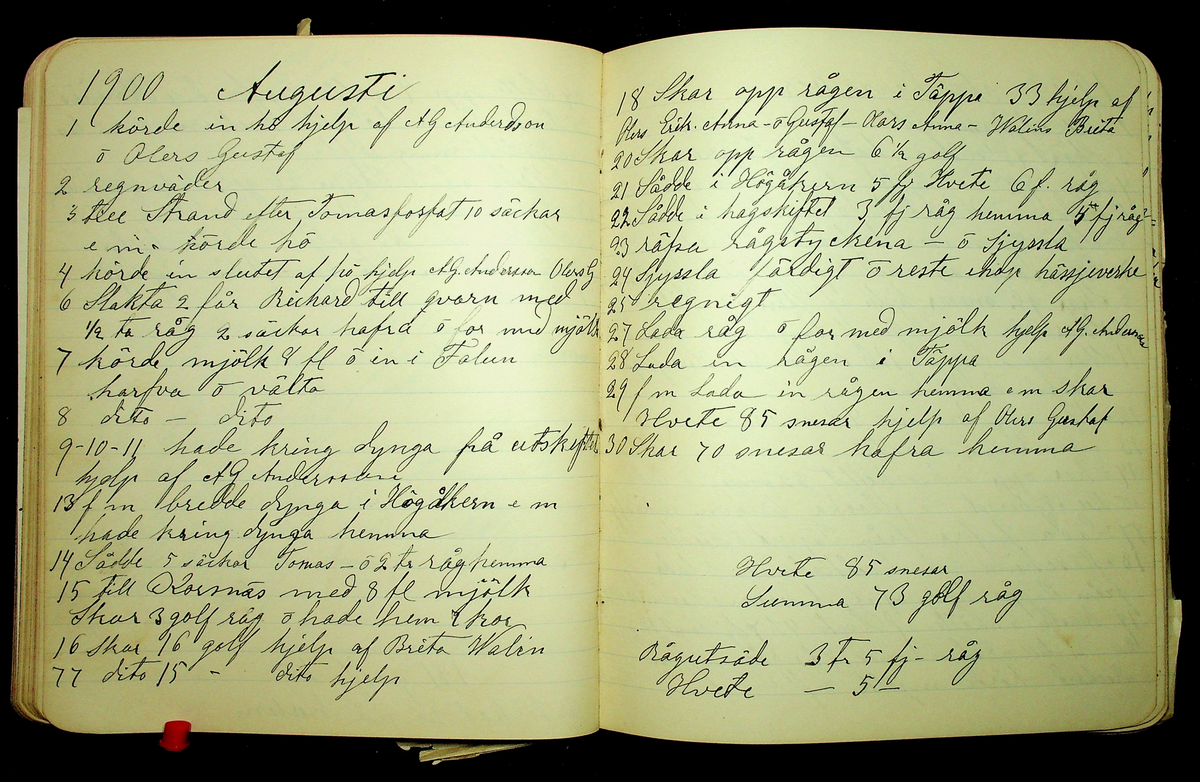 1900 Augusti
1 körde in hö hjelp af AG Andersson
ö Olers Gustaf
2 regnväder
3 till Strand efter Tomasfosfat 10 säckar
e m. körde hö
4 körde in slutet af hö hjelp AG. Andersson Olers G
6 Slakta 2 får Richard till qvarn med
1/2 ta råg 2 säckar hafra ö for med mjölk
7 körde mjölk 8 fl ö in i Falun
harfva ö välta
8 dito - dito
9-10-11 hade kring dynga på utskiftet
hjelp af AG Andersson
13 f m bredde dynga i Högåkern e m
hade kring dynga hemma
14 Sådde 5 säckar Tomas - ö 2 tr råg hemma
15 till Kornäs med 8 fl mjölk
Skar 3 golf råg ö hade hem kor
16 skar 16 golf hjelp af Brita Walin
77 dito 15 - dito hjelp
18 Skar opp rågen i Täppa 33 hjelp af
Olers Erik. Anna - ö Gustaf - Olars Anna - Walins Brita
20 Skar opp rågen 6 1/2 golf
21 Sådde i Högåkern 5 fj Hvete 6 f. råg
22 Sådde i hagskiftet 3 fj råg hemma 5 fj råg
23 räfsa rågstyckena - ö Sjyssla
24 Sjyssla färdigt ö reste ihop hässjevirke
25 regnigt
27 Lada råg ö for med mjölk hjelp AG. Andersson
28 Lada in rågen i Täppa
29 f m Lada in rågen hemma e m skar
Hvete 85 snesar hjelp af Olers Gustaf
30 Skar 70 snesar hafra hemma
Hvete 85 snesar
Summa 73 golf råg
Rågutsäde 3 tr 5 fj - råg
Hvete - 5 -